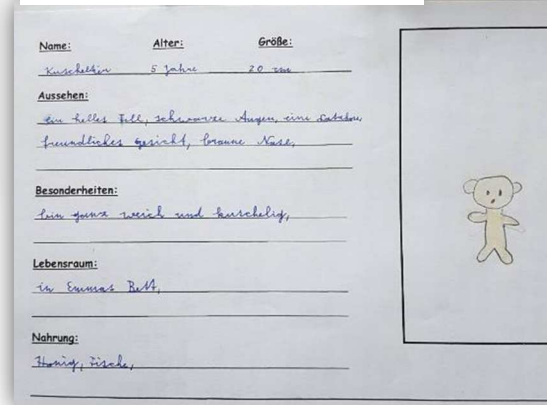 Name: Alter: Größe:
Kuscheltier 5 Jahre 20 cm
Aussehen:
ein helles Fell, schwarze Augen, eine
freundliches Gesicht, braune Nase,
Besonderheiten:
bin ganz weich und kuschelig,
Lebensraum:
in Emmas Bett,
Nahrung:
Honig, Fische,